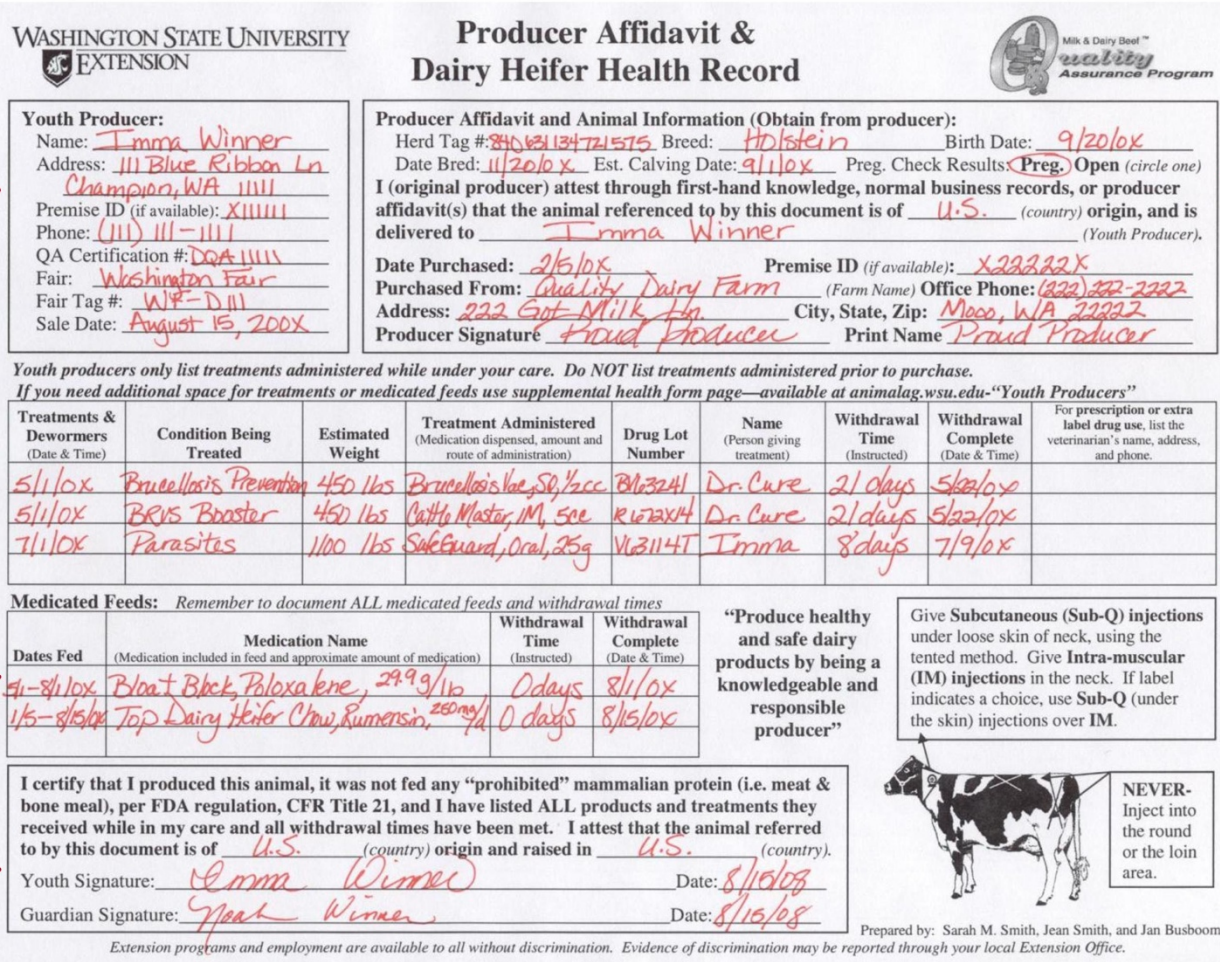 WASHINGTON STATE UNIVERSITY
EXTENSION
Producer Affidavit &
Dairy Heifer Health Record
Milk & Dairy Beef ™
Quality
Assurance Program
Youth Producer:
Name: Imma Winner
Address: 111 Blue Ribbon Ln
Champion, WA 11111
Premise ID (if available): X111111
Phone: (111) 111-1111
QA Certification #: DQA 11111
Fair: Washington Fair
Fair Tag #: WF-D111
Sale Date: August 15, 200X
Producer Affidavit and Animal Information (Obtain from producer):
Herd Tag #: 840631134721575 Breed: Holstein Birth Date: 9/20/0X
Date Bred: 11/20/0X Est. Calving Date: 9/1/0X Preg. Check Results: Preg. Open (circle one)
I (original producer) attest through first-hand knowledge, normal business records, or producer
affidavit(s) that the animal referenced to by this document is of U.S. (country) origin, and is
delivered to Imma Winner (Youth Producer).
Date Purchased: 2/5/0X Premise ID (if available): X22222X
Purchased From: Quality Dairy Farm (Farm Name) Office Phone: (222)222-2222
Address: 222 Got Milk Ln. City, State, Zip: Mooo, WA 22222
Producer Signature Proud Producer Print Name Proud Producer
Youth producers only list treatments administered while under your care. Do NOT list treatments administered prior to purchase.
If you need additional space for treatments or medicated feeds use supplemental health form page—available at animalag.wsu.edu-"Youth Producers"
Treatments & Dewormers (Date & Time) Condition Being Treated Estimated Weight Treatment Administered (Medication dispensed, amount and route of administration) Drug Lot Number Name (Person giving treatment) Withdrawal Time (Instructed) Withdrawal Complete (Date & Time) For prescription or extra label drug use, list the veterinarian's name, address, and phone.
5/1/0X Brucellosis Prevention 450 lbs Brucellosis Vac, SQ, 1/2cc BV63241 Dr. Cure 21 days 5/22/0X
5/1/0X BRVS Booster 450 lbs Cattle Master, IM, 5cc R672X14 Dr. Cure 21 days 5/22/0X
7/1/0X Parasites 1100 lbs SafeGuard, Oral, 25g V63114T Imma 8 days 7/9/0X
Medicated Feeds: Remember to document ALL medicated feeds and withdrawal times
Dates Fed Medication Name (Medication included in feed and approximate amount of medication) Withdrawal Time (Instructed) Withdrawal Complete (Date & Time)
5/1-8/1/0X Bloat Block, Poloxalene, 29.9 g/lb 0 days 8/1/0X
1/5-8/15/0X Top Dairy Heifer Chow, Rumensin, 250mg/d 0 days 8/15/0X
"Produce healthy
and safe dairy
products by being a
knowledgeable and
responsible
producer"
Give Subcutaneous (Sub-Q) injections
under loose skin of neck, using the
tented method. Give Intra-muscular
(IM) injections in the neck. If label
indicates a choice, use Sub-Q (under
the skin) injections over IM.
I certify that I produced this animal, it was not fed any "prohibited" mammalian protein (i.e. meat &
bone meal), per FDA regulation, CFR Title 21, and I have listed ALL products and treatments they
received while in my care and all withdrawal times have been met. I attest that the animal referred
to by this document is of U.S. (country) origin and raised in U.S. (country).
Youth Signature: Imma Winner Date: 8/15/08
Guardian Signature: Noah Winner Date: 8/15/08
NEVER-
Inject into
the round
or the loin
area.
Prepared by: Sarah M. Smith, Jean Smith, and Jan Busboom
Extension programs and employment are available to all without discrimination. Evidence of discrimination may be reported through your local Extension Office.